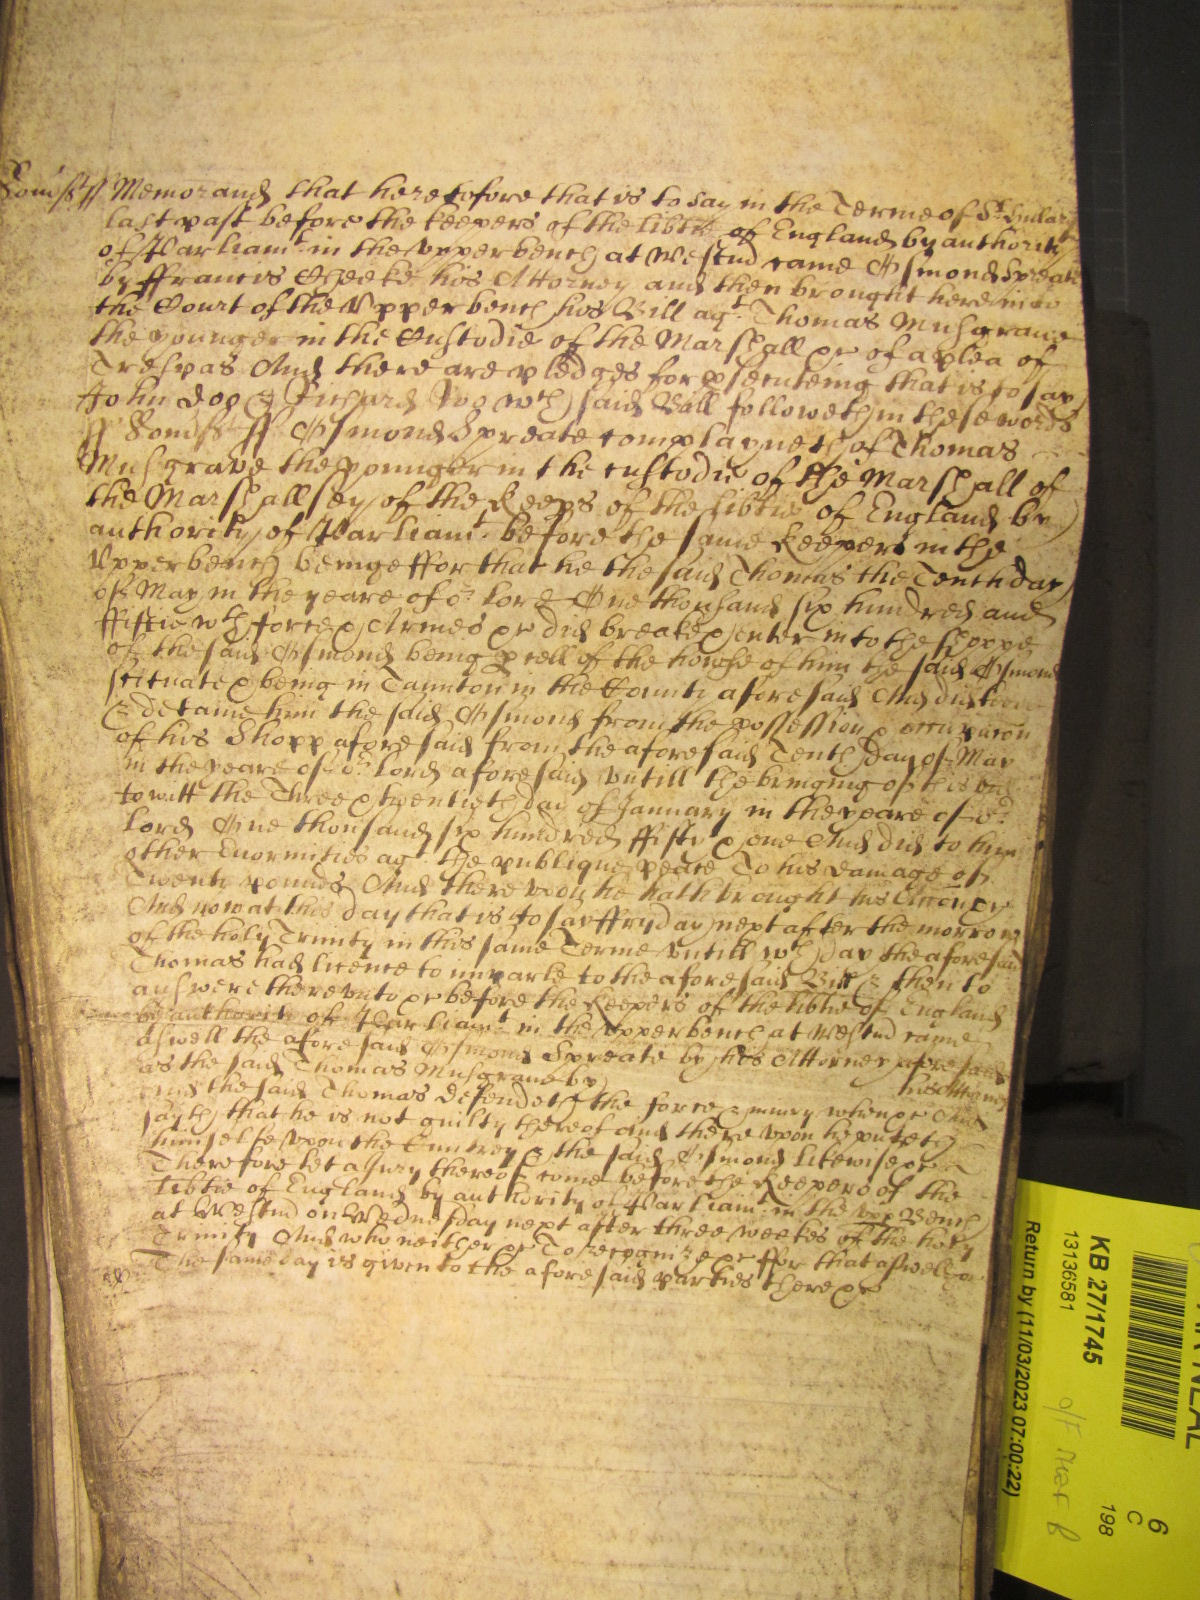 Somsstt ss Memorand that heretofore that is to say in the Terme of St Hilar
last past before the keepers of the libtie of England by authority
of Parliamt in the upper bench at Westmd came Osmond Spreate
by ffrancis Speeke his Attorney and then brought here into
the Court of the Upper bench his Bill agt Thomas Musgrave
the younger in the Custodie of the Marshall &c of a plea of
Trespas And there are pledges for psecuteing that is to say
John doo & Richard Roo wch said Bill followeth in these words
ss Somsstt ss Osmond Spreate complayneth of Thomas
Musgrave the younger in the custodie of the Marshall of
the Marshallsey of the Keeps of the libtie of England by
authority of Parliamt before the same keepers in the
Upper bench beinge ffor that he the said Thomas the Tenth day
of May in the yeare of or Lord One thousand six hundred and
ffiftie wth force & Armes &c did breake & enter into the shoppe
of the said Osmond being pcell of the howse of him the said Osmond
scituate & being in Taunton in the County aforesaid And did
& detaine him the said Osmond from the possession & occupacon
of his Shopp aforesaid from the aforesaid Tenth day of May
in the yeare of or Lord aforesaid untill the bringing of this
to witt the Three & twentieth day of January in the yeare of or
Lord One thousand six hundred ffifty & one And did to him
other Enormities agt the publique peace To his damage of
Twenty pounds And thereupon he hath brought his Accon &c
And now at this day that is to say ffryday next after the morrow
of the holy Trinity in this same Terme untill wch day the aforesaid
Thomas had licence to imparle to the aforesaid Bill & then to
answere thereunto &c before the Keepers of the libtie of England
by authority of Parliamt in the upper bench at Westmd came
aswell the aforesaid Osmond Spreate by his Attorney aforesaid
as the said Thomas Musgrave by his Attorney
And the said Thomas defendeth the force & iniury when &c And
sayth that he is not guilty thereof and thereupon he putteth
himselfe upon the Cuntrey & the said Osmond likewise &c
Therefore let a Jury thereof come before the Keepers of the
libtie of England by authority of Parliamt in the upp Bench
at Westmd on Wednesday next after three weekes of the holy
Trinity And who neither &c To recognize &c ffor that aswell &c
The same day is given to the aforesaid parties there &c
KB 27/1745
13136581
Return by (11/03/2023 07:00:22)
6
C
198